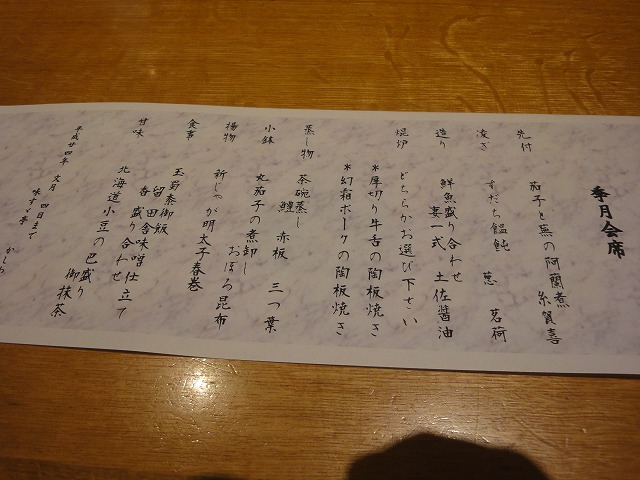 季月会席
先付
茄子と蕪の阿蘭煮
糸賀喜
凌ぎ
すだち饂飩 葱 茗荷
造り
鮮魚盛り合わせ
妻一式 土佐醤油
焜炉
どちらかお選び下さい
*厚切り牛舌の陶板焼き
*幻霜ポークの陶板焼き
蒸し物
茶碗蒸し
鱧 赤板 三つ葉
小鉢
丸茄子の煮卸し
おぼろ昆布
揚物
新じゃが明太子春巻
食事
玉蜀黍御飯
留 田舎味噌仕立て
香 盛り合わせ
甘味
北海道小豆の巴盛り
御抹茶
平成廿四年 文月 四日まで